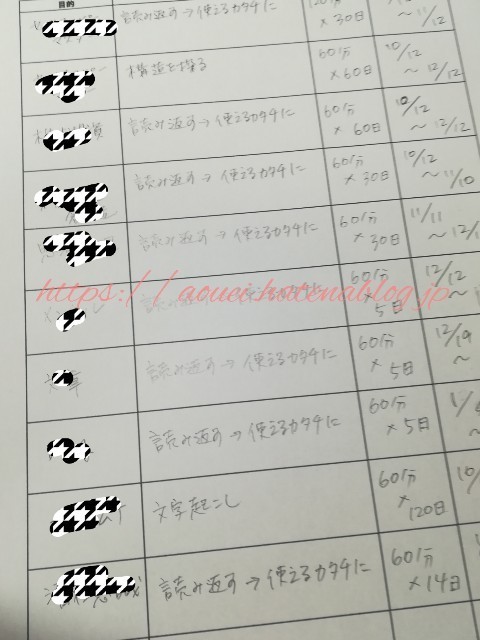 目的
読み返す→使えるカタチに
120分
×30日
～11/12
構造を探る
60分
×60日
10/12
～12/12
読み返す→使えるカタチに
60分
×60日
10/12
～12/12
読み返す→使えるカタチに
60分
×30日
10/12
～11/10
読み返す→使えるカタチに
60分
×30日
11/11
～12/1
読み返す→使えるカタチに
60分
×5日
12/12
https://aouei.hatenablog.jp
読み返す→使えるカタチに
60分
×5日
12/19
～
読み返す→使えるカタチに
60分
×5日
文字起こし
60分
×
120日
読み返す→使えるカタチに
60分
×14日